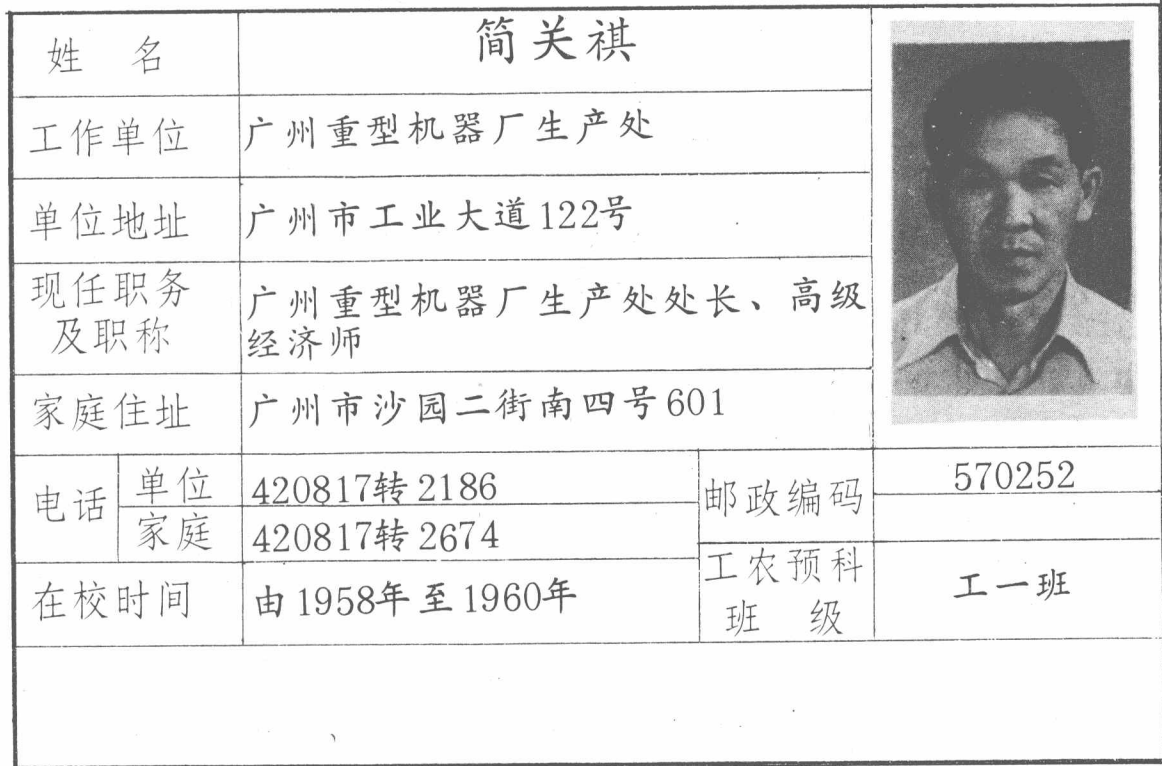 姓 名 简关祺
工作单位 广州重型机器厂生产处
单位地址 广州市工业大道122号
现任职务
及职称
广州重型机器厂生产处处长、高级
经济师
家庭住址 广州市沙园二街南四号601
电话 单位 420817转2186 邮政编码 570252
家庭 420817转2674
在校时间 由1958年至1960年
工农预科
班 级
工一班